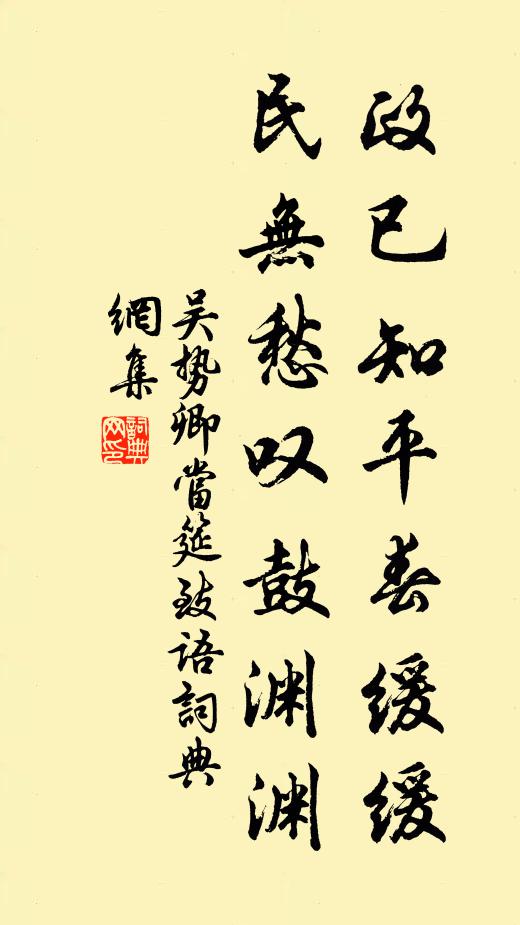 政已知平春缓缓
民無愁叹鼓渊渊
吴势卿當筵致语詞典
網集
詞典
网印